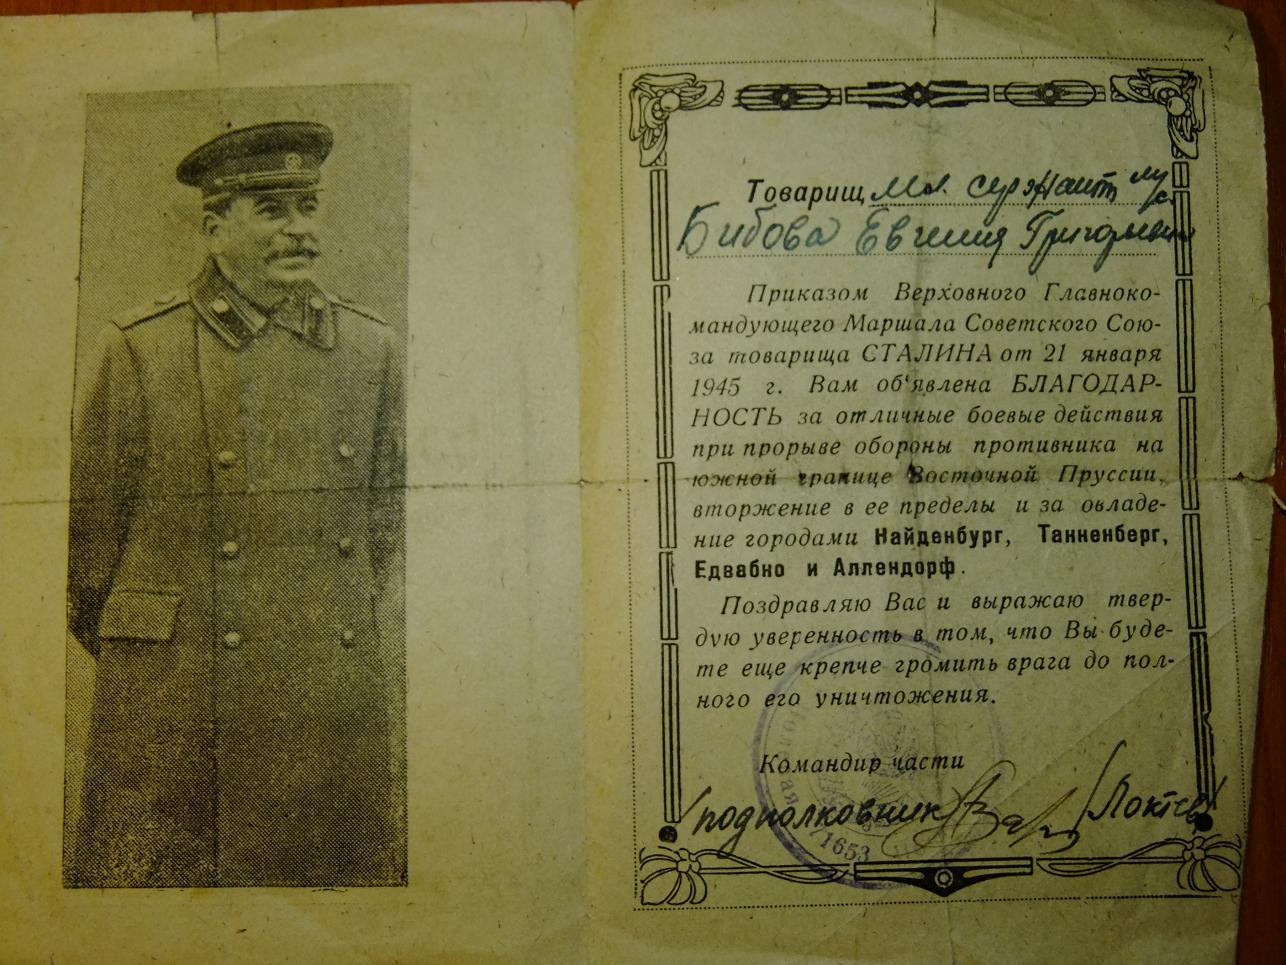 Товарищ мл. сержант
Бибова Евгения
Приказом Верховного Главноко-
мандующего Маршала Советского Сою-
за товарища СТАЛИНА от 21 января
1945 г. Вам об'явлена БЛАГОДАР-
НОСТЬ за отличные боевые действия
при прорыве обороны противника на
южной границе Восточной Пруссии,
вторжение в ее пределы и за овладе-
ние городами Найденбург, Танненберг,
Едвабно и Аллендорф.
Поздравляю Вас и выражаю твер-
дую уверенность в том, что Вы буде-
те еще крепче громить врага до пол-
ного его уничтожения.
Командир части
подполковник /Локтев/
71653